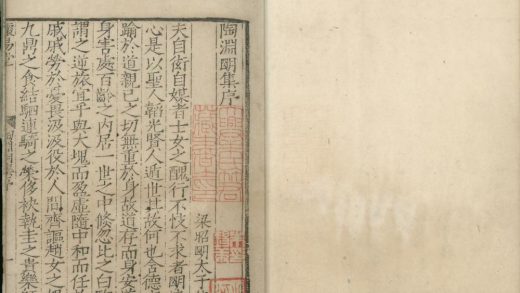 陶淵明集序
梁昭明太子
夫自衒自媒者士女之醜行不忮不求者明
心是以聖人韜光賢人遁世其故何也含德
踰於道親己之切無重於身故道存而身安
身害處百齡之內居一世之中倏忽比之白
謂之逆旅宜乎與大塊而盈虛隨中和而任
戚戚勞於憂畏汲汲役於人間齊謳趙女之
九鼎之食結駟連騎之榮侈袂執圭之貴樂